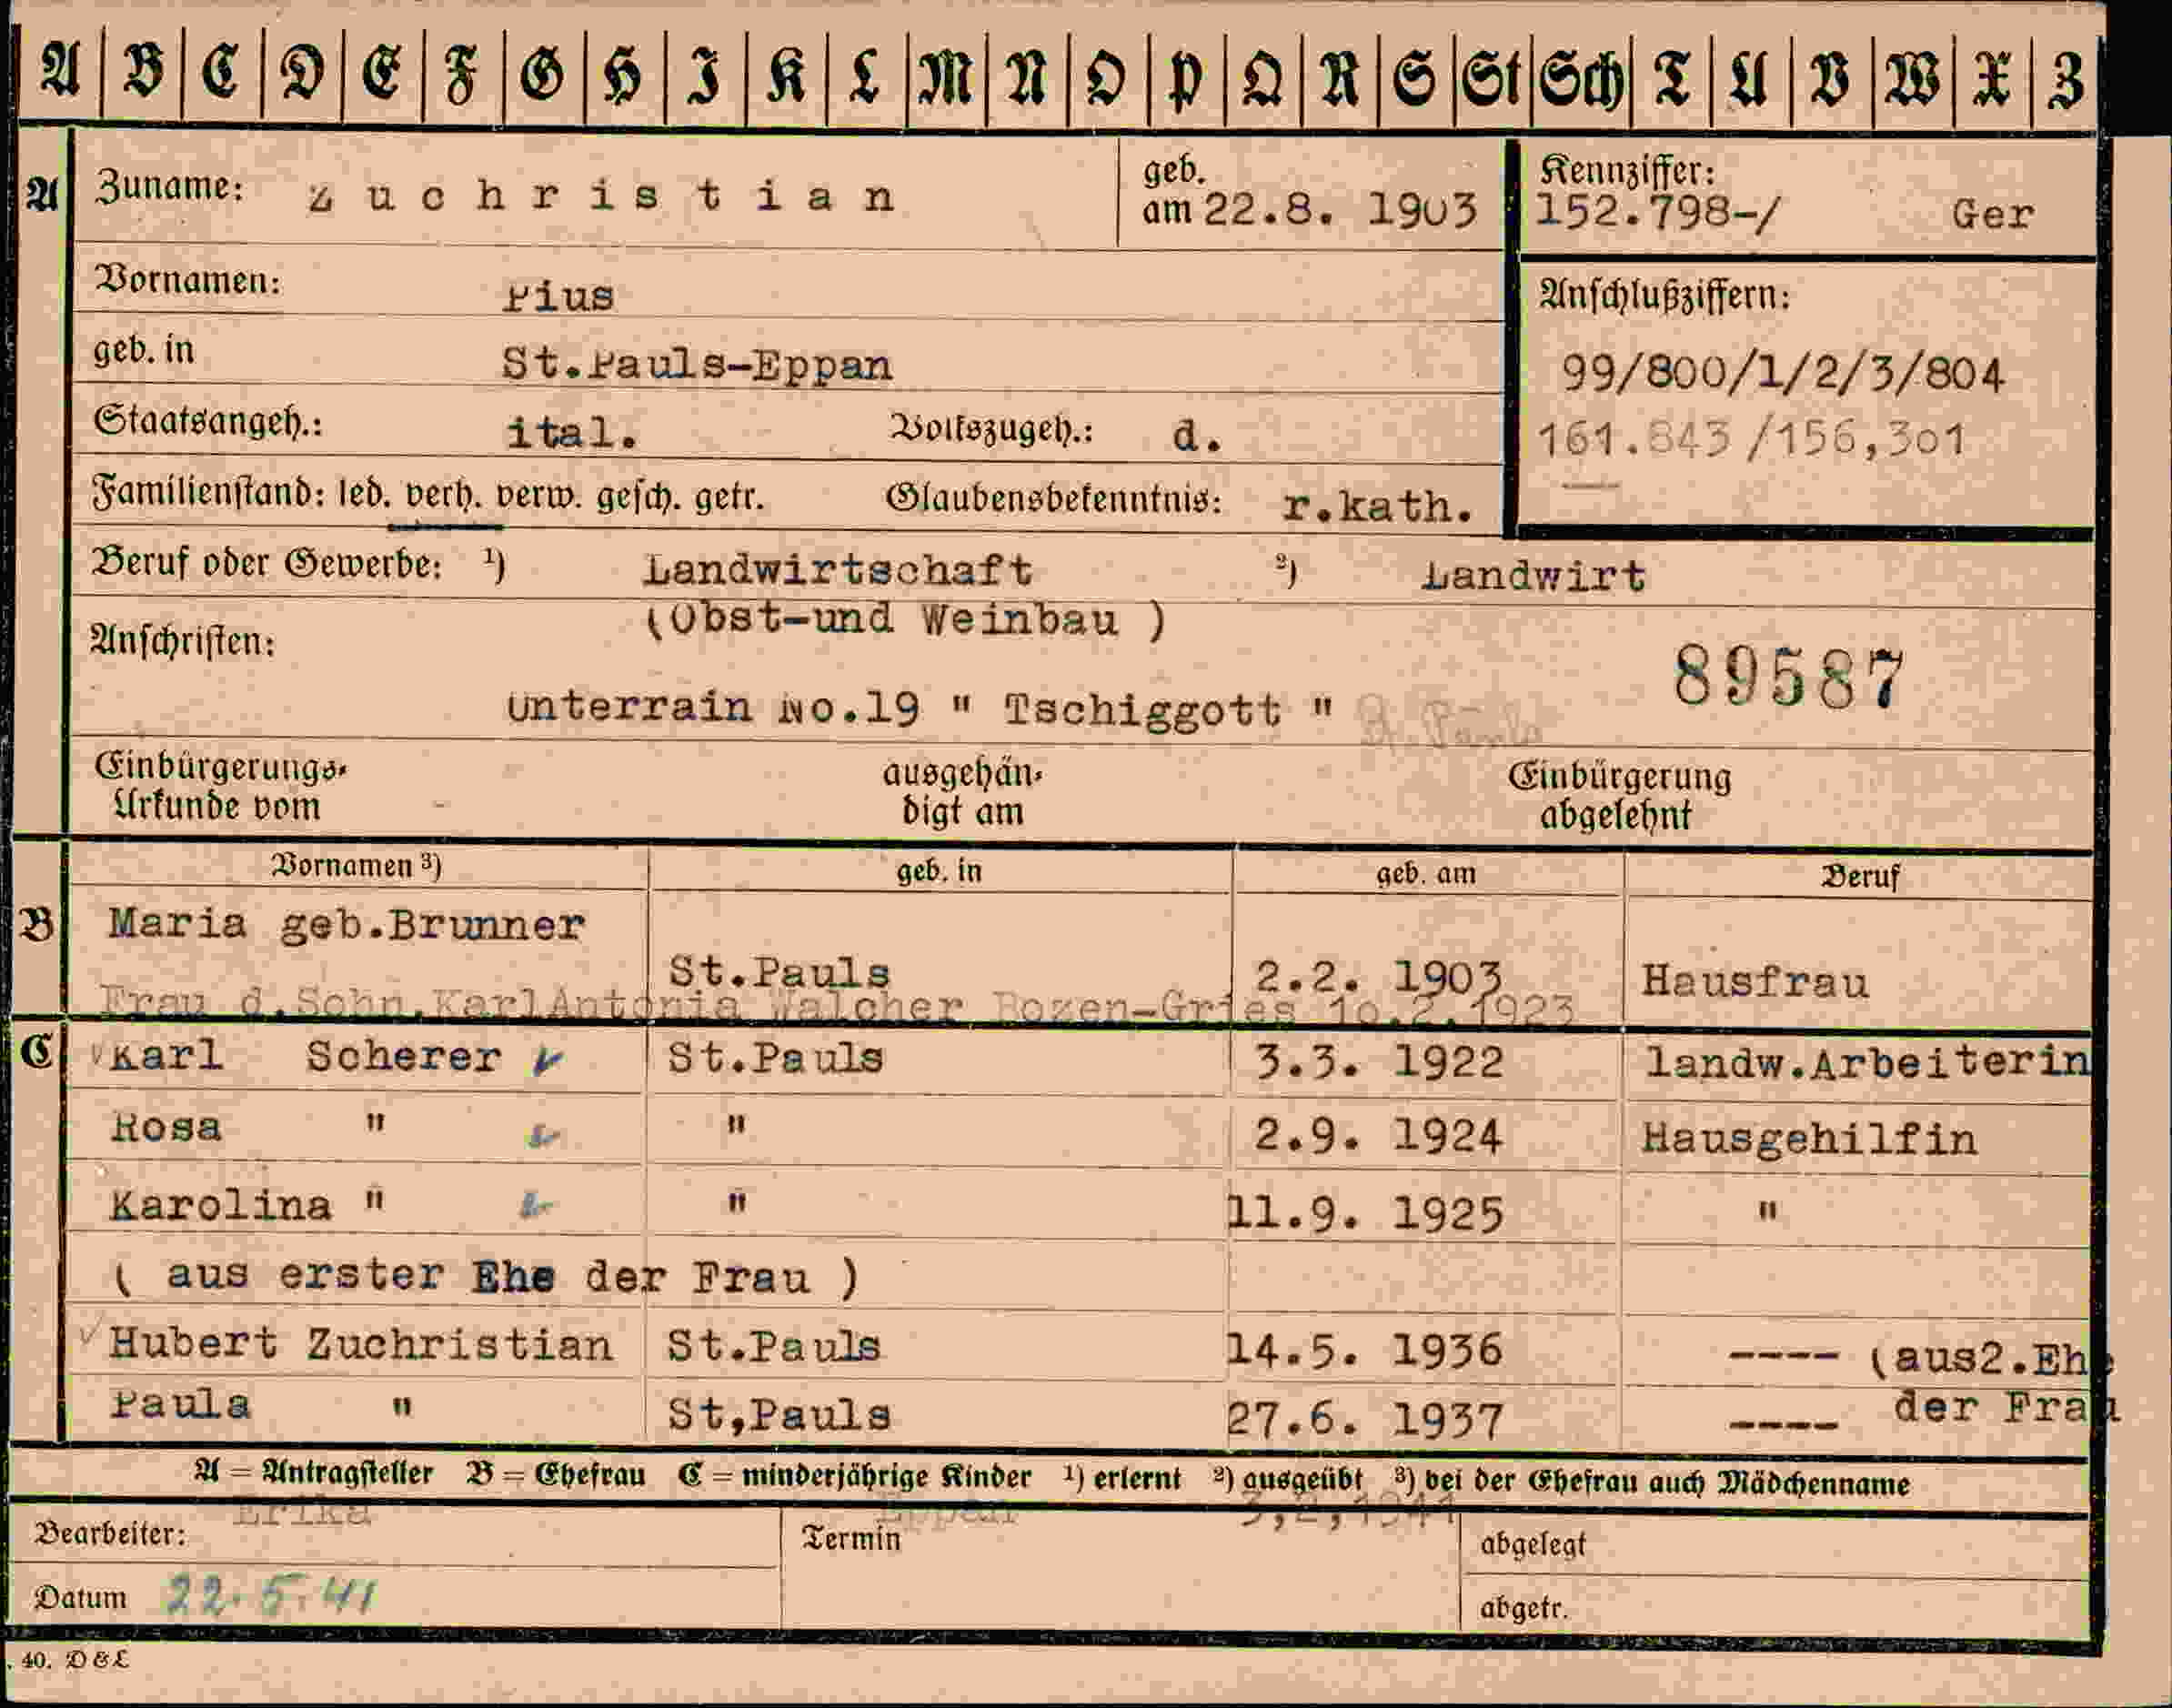 A B C D E F G H I K L M N O P Q R S St Sch T U V W X Z
A Zuname: Zuchristian geb. am 22.8. 1903 Kennziffer: 152.798-/ Ger
Vornamen: Pius Anschlußziffern:
geb. in St.Pauls-Eppan 99/800/1/2/3/804
Staatsangeh.: ital. Volkszugeh.: d. 161.843 /156,301
Familienstand: led. verh. verw. gesch. getr. Glaubensbekenntnis: r.kath.
Beruf oder Gewerbe: ¹) Landwirtschaft ²) Landwirt
(Obst-und Weinbau )
Anschriften: 89587
Unterrain No.19 " Tschiggott " St. Pauls
Einbürgerungs- ausgehän- Einbürgerung
Urkunde vom digt am abgelehnt
Vornamen ³) geb. in geb. am Beruf
B Maria geb.Brunner
St.Pauls 2.2. 1903 Hausfrau
Frau d.Sohn.KarlAntonia Walcher Bozen-Gries 10.2.1923
C Karl Scherer St.Pauls 3.3. 1922 landw.Arbeiterin
Rosa " " 2.9. 1924 Hausgehilfin
Karolina " " 11.9. 1925 "
( aus erster Ehe der Frau )
Hubert Zuchristian St.Pauls 14.5. 1936 ---- (aus2.Ehe
Paula " St,Pauls 27.6. 1937 ---- der Frau
A = Antragsteller B = Ehefrau C = minderjährige Kinder ¹) erlernt ²) ausgeübt ³) bei der Ehefrau auch Mädchenname
Erika Eppan 3,2,1941
Bearbeiter: Termin abgelegt
Datum 22.5.41 abgetr.
. 40. D & L